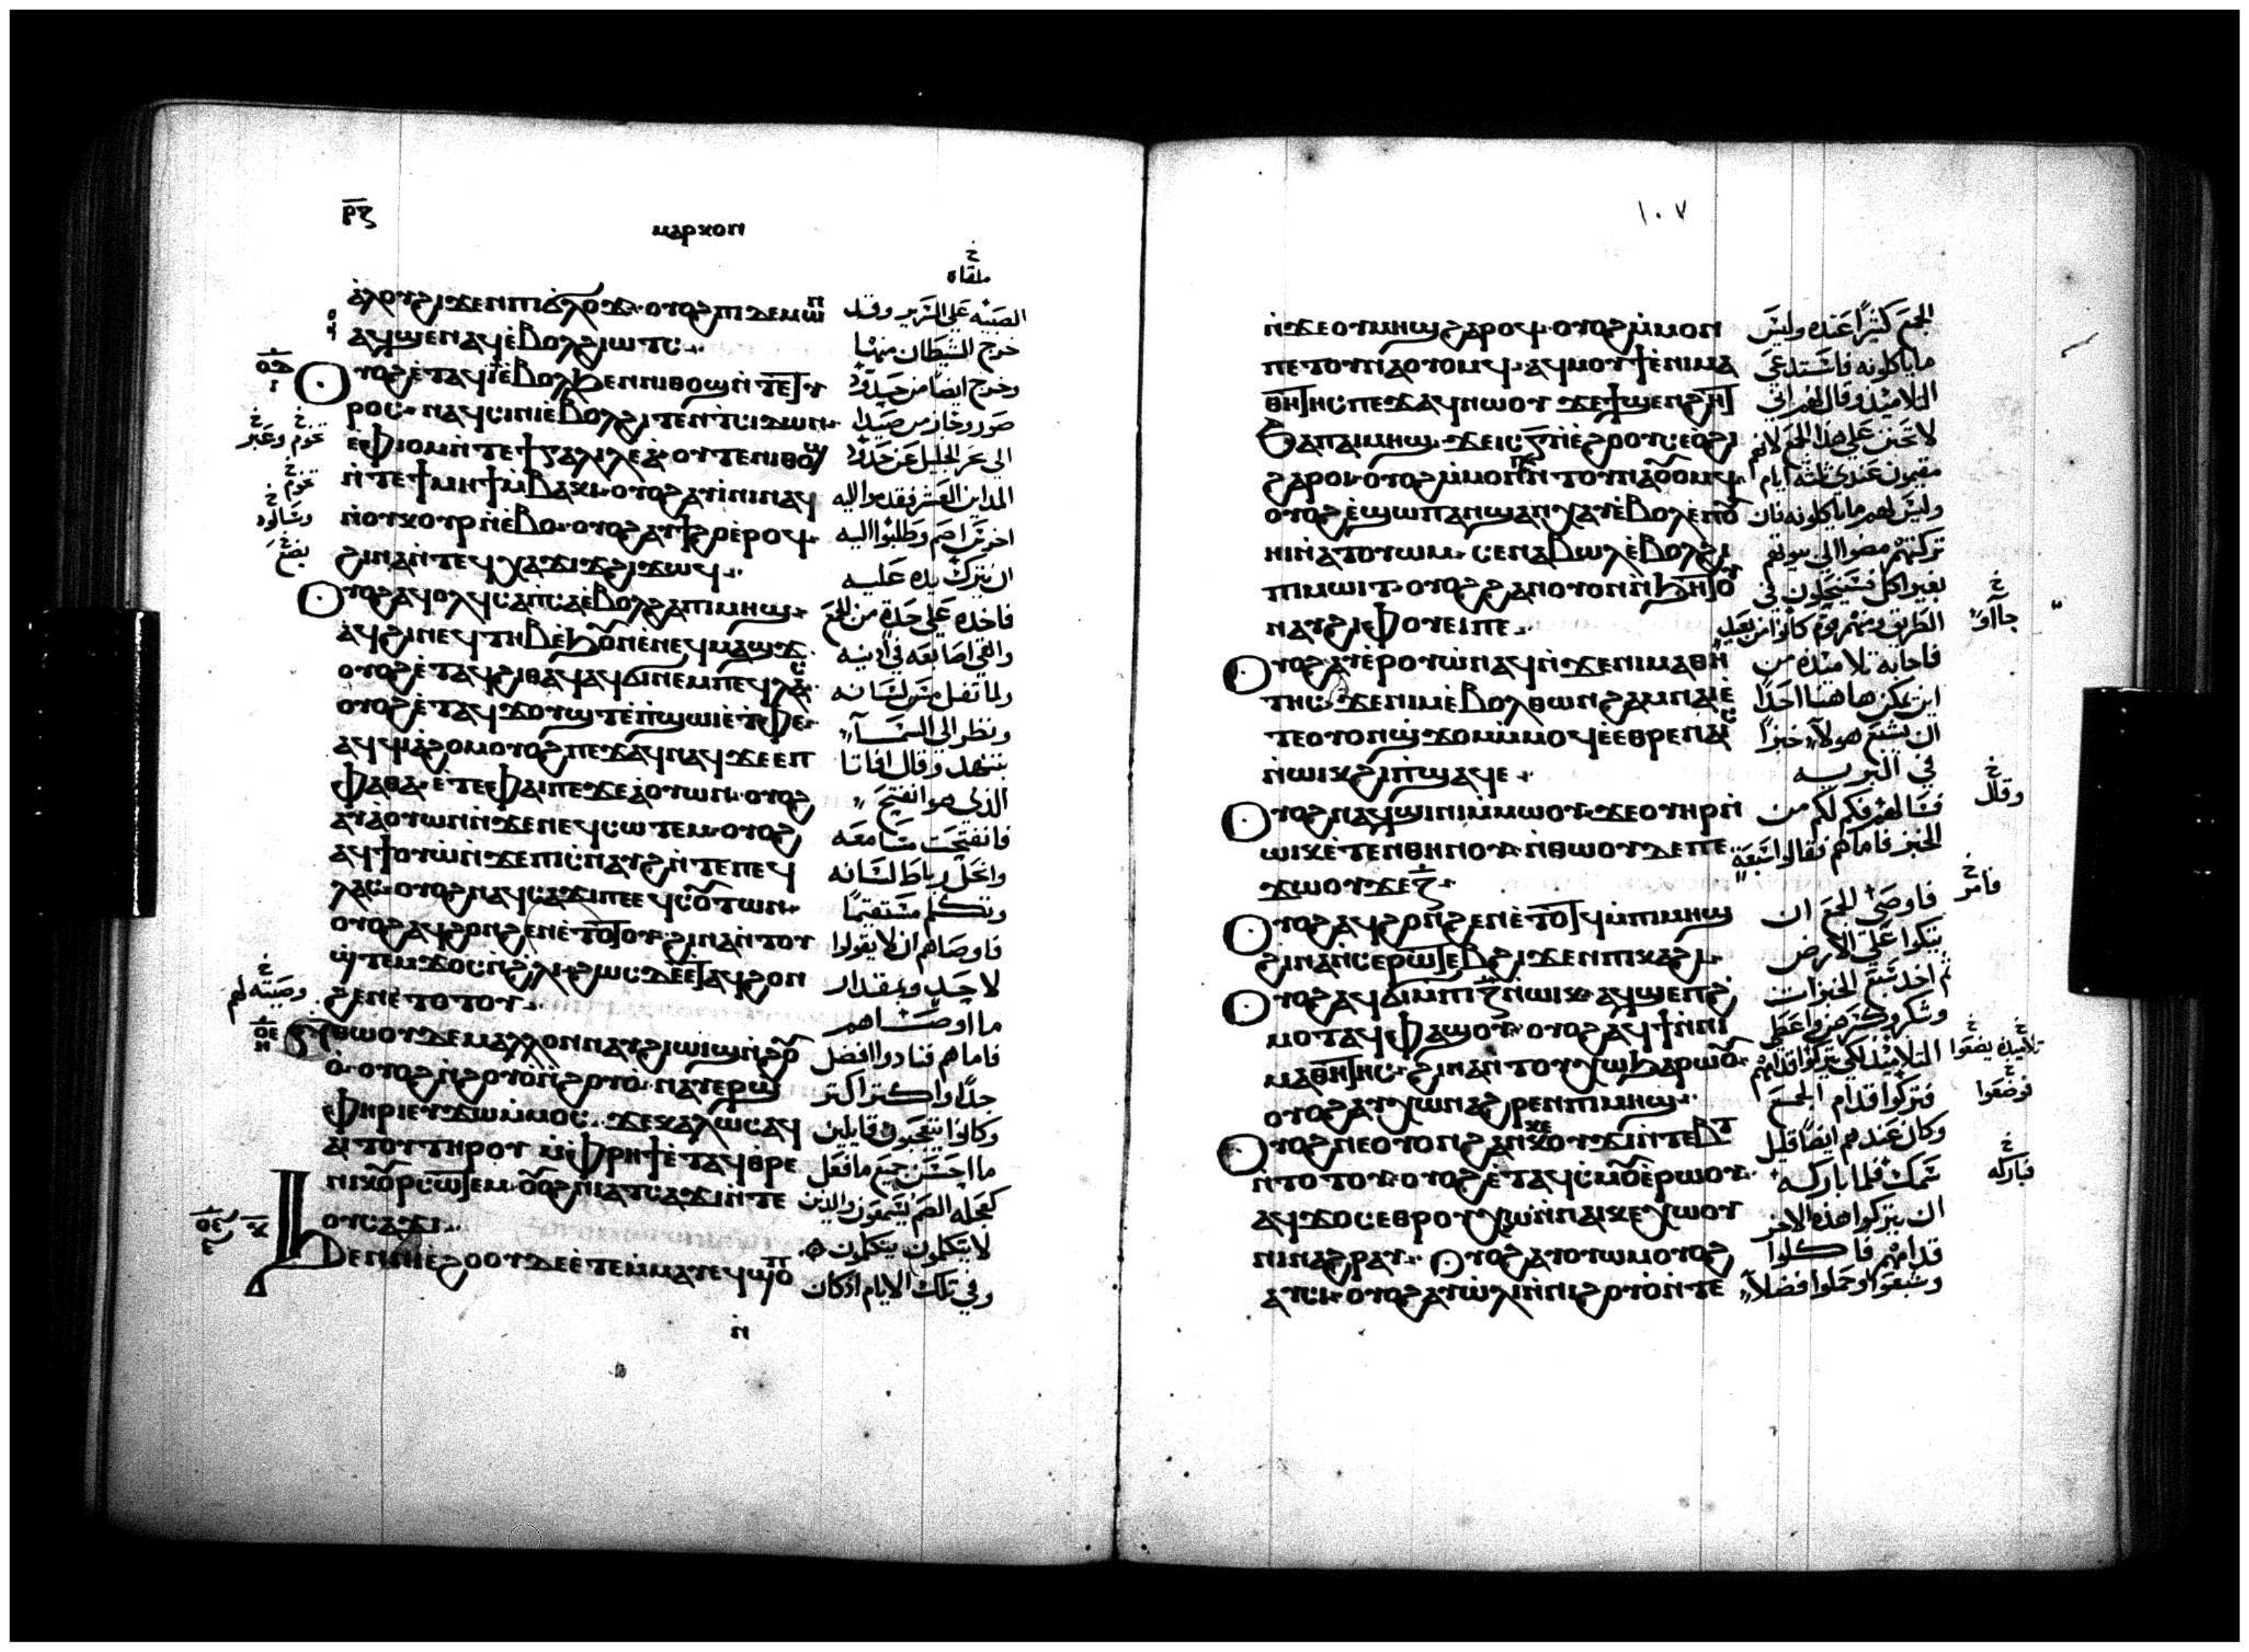 ⲣ̅ⲍ̅
ⲙⲁⲣⲕⲟⲛ
خ
ملقاه
ⲁⲗⲟⲩϩⲓϫⲉⲛⲡⲓϭⲗⲟϫ· ⲟⲩⲟϩⲡⲓⲇⲉⲙⲱⲛ الصبيه على السرير وقد
ⲁϥϣⲉⲛⲁϥⲉ̀ⲃⲟⲗϩⲓⲱⲧⲥ خرج الشيطان منها
ⲟⲩⲟϩⲉ̀ⲧⲁϥⲓ̀ⲉ̀ⲃⲟⲗϧⲉⲛⲛⲓⲑⲱϣⲛ̀ⲧⲉⲧⲩ وخرج ايضا من حدود
ⲣⲟⲥ· ⲛⲁϥⲥⲓⲛⲓⲉ̀ⲃⲟⲗϩⲓⲧⲉⲛⲧ̀ⲥⲓⲇⲱⲛ صور وجاز من صيدا
ⲉ̀ⲫⲓⲟⲙⲛ̀ⲧⲉϯⲅⲁⲗⲓⲗⲉⲁ̀· ⲟⲩⲧⲉⲛⲓⲑⲟϣ الى بحر الجليل عن حدود
ⲛ̀ⲧⲉϯⲙⲏϯⲙ̀ⲃⲁⲕⲓ· ⲟⲩⲟϩⲁⲩⲓ̀ⲛⲓⲛⲁϥ المداين العشر فقدموا اليه
ⲛ̀ⲟⲩⲕⲟⲩⲣⲛ̀ⲉⲃⲟ· ⲟⲩⲟϩⲁⲩϯϩⲟⲉ̀ⲣⲟϥ اخرس اصم وطلبوا اليه
ϩⲓⲛⲁⲛ̀ⲧⲉϥⲭⲁϫⲓϫϩⲓϫⲱϥ ان يترك يده عليه
ⲟⲩⲟϩⲁϥⲟⲗϥⲥⲁⲡ̀ⲥⲁⲉ̀ⲃⲟⲗϩⲁⲡⲓⲙⲏϣ فاخذه على حدة من الجمع
ⲁϥϩⲓⲛⲉϥⲧⲏⲃⲉ̀ϧⲟⲩⲛⲉ̀ⲛⲉϥⲙⲁϣϫ والقى اصابعه في اذنيه
ⲟⲩⲟϩⲉ̀ⲧⲁϥϩⲓⲑⲁϥⲁϥϭⲓⲛⲉⲙⲡⲉϥⲗⲁⲥ ولما تفل مس لسانه
ⲟⲩⲟϩⲉ̀ⲧⲁϥϫⲟⲩϣⲧⲉ̀ⲡ̀ϣⲱⲓⲉ̀ⲧ̀ⲫⲉ ونظر الى السمآء
ⲁϥϥⲓⲁ̀ϩⲟⲙⲟⲩⲟϩⲡⲉϫⲁϥⲛⲁϥϫⲉⲉⲡ تنهد وقال افاتا
ⲫⲁⲑⲁ· ⲉ̀ⲧⲉⲫⲁⲓⲡⲉϫⲉⲁ̀ⲟⲩⲱⲛ· ⲟⲩⲟϩ الذي هو انفتح
ⲁⲩⲁ̀ⲟⲩⲱⲛⲛ̀ϫⲉⲛⲉϥⲥⲱⲧⲉⲙ· ⲟⲩⲟϩ فانفتحت مسامعه
ⲁϥϯⲟⲩⲱⲛ̀ϫⲉⲡⲓⲥ̀ⲛⲁⲩϩⲛ̀ⲧⲉⲡⲉϥ وانحل رباط لسانه
ⲗⲁⲥ· ⲟⲩⲟϩⲛⲁϥⲥⲁϫⲓⲡⲉⲉϥⲥⲟⲩⲧⲱⲛ وتكلم مستقيمًا
ⲟⲩⲟϩⲁϥϩⲟⲛϩⲉⲛⲉ̀ⲧⲟⲧⲟⲩ· ϩⲓⲛⲁⲛ̀ⲧⲟⲩ فاوصاهم ان لا يقولوا
ϣ̀ⲧⲉⲙϫⲟⲥⲛ̀ϩⲗⲓ· ϩⲱⲥⲇⲉⲉ̀ⲧⲁϥϩⲟⲛ لاحد وبمقدار
ϩⲉⲛⲉ̀ⲧⲟⲧⲟⲩ ما اوصاهم
ⲛ̀ⲑⲱⲟⲩⲇⲉⲙⲁⲗⲗⲟⲛⲛⲁⲩϩⲓⲱⲓϣⲛ̀ϩⲟⲩ فاما هم فنادوا افضل
ⲟ̀· ⲟⲩⲟϩⲛ̀ϩⲟⲩⲟ̀ⲛ̀ϩⲟⲩⲟ̀· ⲛⲁⲩⲉⲣϣ جدًا واكثر اكثر
ⲫⲏⲣⲓⲉⲩϫⲱⲙ̀ⲙⲟⲥ· ϫⲉⲕⲁⲗⲱⲥⲁϥ وكانوا يتعجبون قايلين
ⲁⲓⲧⲟⲩⲧⲏⲣⲟⲩ· ⲙ̀ⲫⲣⲏϯⲉ̀ⲧⲁϥⲑⲣⲉ ما احسن جميع ما فعل
ⲛⲓⲕⲟⲩⲣⲥⲱⲧⲉⲙ· ⲟⲩⲟϩⲛⲓⲁⲧⲥⲁϫⲓⲛ̀ⲧⲉ كجعله الصم يسمعون والذين
ⲟⲩⲥⲁϫⲓ لا يتكلون يتكلون
ϧⲉⲛⲛⲓⲉ̀ϩⲟⲟⲩⲇⲉⲉ̀ⲧⲉⲙ̀ⲙⲁⲩⲉϥϣⲟⲡ وفي تلك الايام اذ كان
ⲛ̀
تخوم وعبر
تخوم
وسالوه
يضع
وصيته لهم
١٠٧
ⲛ̀ϫⲉⲟⲩⲙⲏϣϩⲁⲣⲟϥ· ⲟⲩⲟϩⲙ̀ⲙⲟⲛ الجمع كثيرًا عنده وليس
ⲡⲉⲧⲟⲩⲛⲁⲟⲩⲟⲙϥ· ⲁϥⲙⲟⲩϯⲉ̀ⲛⲓⲙⲁ ما ياكلونه فاستدعى
ⲑⲏⲧⲏⲥⲡⲉϫⲁϥⲛⲱⲟⲩ· ϫⲉϯϣⲉⲛϩⲏⲧ التلاميذ وقال لهم اني
ϧⲁⲡⲁⲓⲙⲏϣ· ϫⲉⲓⲥⲅ̅ⲛ̀ⲉ̀ϩⲟⲟⲩⲥⲉⲟϩⲓ لا تحنن على هذا الجمع لانهم
ϩⲁⲣⲟⲓ· ⲟⲩⲟϩⲙ̀ⲙⲟⲛⲡⲉⲧⲟⲩⲛⲁⲟⲩⲟⲙϥ مقيمون عندي ثلثه ايام
ⲟⲩⲟϩⲉ̀ϣⲱⲡⲁⲛϣⲁⲛⲭⲁⲩⲉ̀ⲃⲟⲗⲉ̀ⲛⲟⲩ وليس لهم ما ياكلونه فان
ⲏⲓⲛ̀ⲁⲧⲟⲩⲱⲙ· ⲥⲉⲛⲁⲃⲱⲗⲉ̀ⲃⲟⲗϩⲓ تركتهم مضوا الى بيوتهم
ⲡⲓⲙⲱⲓⲧ· ⲟⲩⲟϩϩⲁⲛⲟⲩⲟⲛⲛ̀ϧⲏⲧⲟⲩ بغير اكل فسينحلون في
ⲛⲁⲩϩⲓⲫⲟⲩⲉⲓⲡⲉ الطريق ومنهم قوم كانوا من بعيد
ⲟⲩⲟϩⲁⲩⲉ̀ⲣⲟⲩⲱ̀ⲛⲁϥⲛ̀ϫⲉⲛⲓⲙⲁⲑⲏ فاجابه تلاميذه من
ⲧⲏⲥ· ϫⲉⲛⲓⲙⲉ̀ⲃⲟⲗⲑⲱⲛϩⲁⲙⲛⲁⲓⲉ̀ اين يمكن هاهنا احدًا
ⲧⲉⲟⲩⲟⲛϣ̀ϫⲟⲙⲙ̀ⲙⲟϥⲉ̀ⲉⲑⲣⲉⲛⲁⲓⲥⲓ ان يشبع هولاء خبزًا
ⲛ̀ⲱⲓⲕϩⲓⲡ̀ϣⲁϥⲉ في البريه
ⲟⲩⲟϩⲛⲁϥϣⲓⲛⲓⲙ̀ⲙⲱⲟⲩ· ϫⲉⲟⲩⲏⲣⲛ̀ فسالهم فكم لكم من
ⲱⲓⲕⲉ̀ⲧⲉⲛⲑⲏⲛⲟⲩ· ⲛ̀ⲑⲱⲟⲩⲇⲉⲡⲉ الخبز فاما هم فقالوا سبعة
ϫⲱⲟⲩϫⲉⲍ̅
ⲟⲩⲟϩⲁϥϩⲟⲛϩⲉⲛⲉ̀ⲧⲟⲧϥⲙ̀ⲡⲓⲙⲏϣ فاوصى الجمع ان
ϩⲓⲛⲁⲛ̀ⲥⲉⲣⲱⲧⲉⲃϩⲓϫⲉⲛⲡⲓⲕⲁϩⲓ يتكوا على الارض
ⲟⲩⲟϩⲁϥϭⲓⲙ̀ⲡⲓⲍ̅ⲛ̀ⲱⲓⲕ· ⲁϥϣⲉⲡϩ ثم اخذ سبع الخبزات
ⲙⲟⲧⲁϥⲫⲁϣⲟⲩ· ⲟⲩⲟϩⲁϥϯⲛ̀ⲛⲓ وشكر وكسرهن واعطى
ⲙⲁⲑⲏⲧⲏⲥ· ϩⲓⲛⲁⲛ̀ⲧⲟⲩⲭⲱϧⲁⲣⲱⲟⲩ التلاميذ لكي يتركوا قدامهم
ⲟⲩⲟϩⲁⲩⲭⲱⲛⲁϩⲣⲉⲛⲡⲓⲙⲏϣ فتركوا قدام الجمع
ⲟⲩⲟϩⲛⲉⲟⲩⲟⲛϩⲁⲛⲕⲉⲕⲟⲩϫⲓⲛ̀ⲧⲉⲃⲧ وكان عندهم ايضًا قليل
ⲛ̀ⲧⲟⲧⲟⲩ· ⲟⲩⲟϩⲉ̀ⲧⲁϥⲥ̀ⲙⲟⲩⲉ̀ⲣⲱⲟⲩ سمك فلما باركه
ⲁϥϫⲟⲥⲉⲑⲣⲟⲩⲭⲱⲛ̀ⲛⲁⲓⲕⲉⲭⲱⲟⲩ ان يتركوا هذه الاخر
ⲛⲓⲛⲁϩⲣⲁⲩ· ⲟⲩⲟϩⲁⲩⲟⲩⲱⲙⲟⲩⲟϩ قدامهم فاكلوا
ⲁⲩⲥⲓ· ⲟⲩⲟϩⲁⲩⲱ̀ⲗⲓⲛ̀ⲛⲓϩⲟⲩⲟ̀ⲛ̀ⲧⲉ وشبعوا وحملوا فضلاء
جاآوا
وقال
فامر
تلاميذه يضعوا
فوضعوا
فباركه